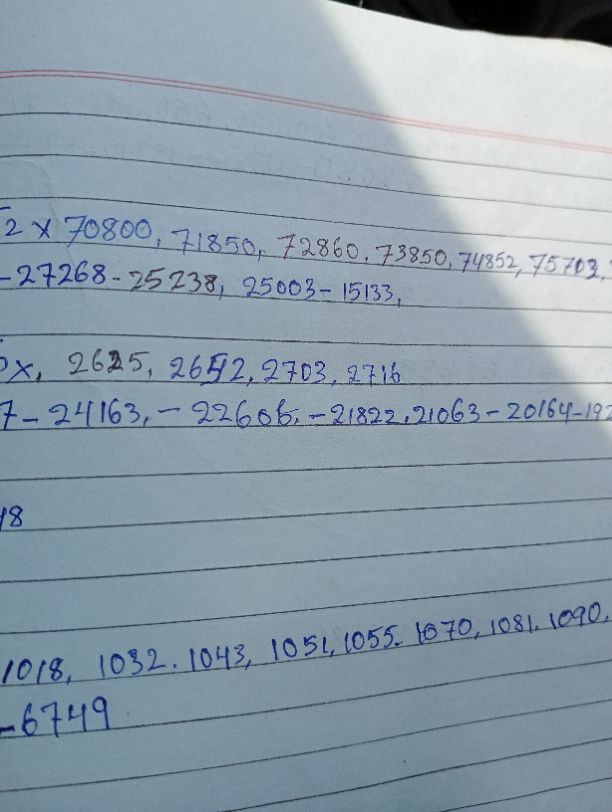 2 x 70800, 71850, 72860. 73850, 74852, 75703,
-27268-25238, 25003-15133,
x, 2625, 2652, 2703, 2716
7-24163, -22606, -21822, 21063-20164-192
18
1018, 1032. 1043, 1051, 1055. 1070, 1081. 1090.
-6749